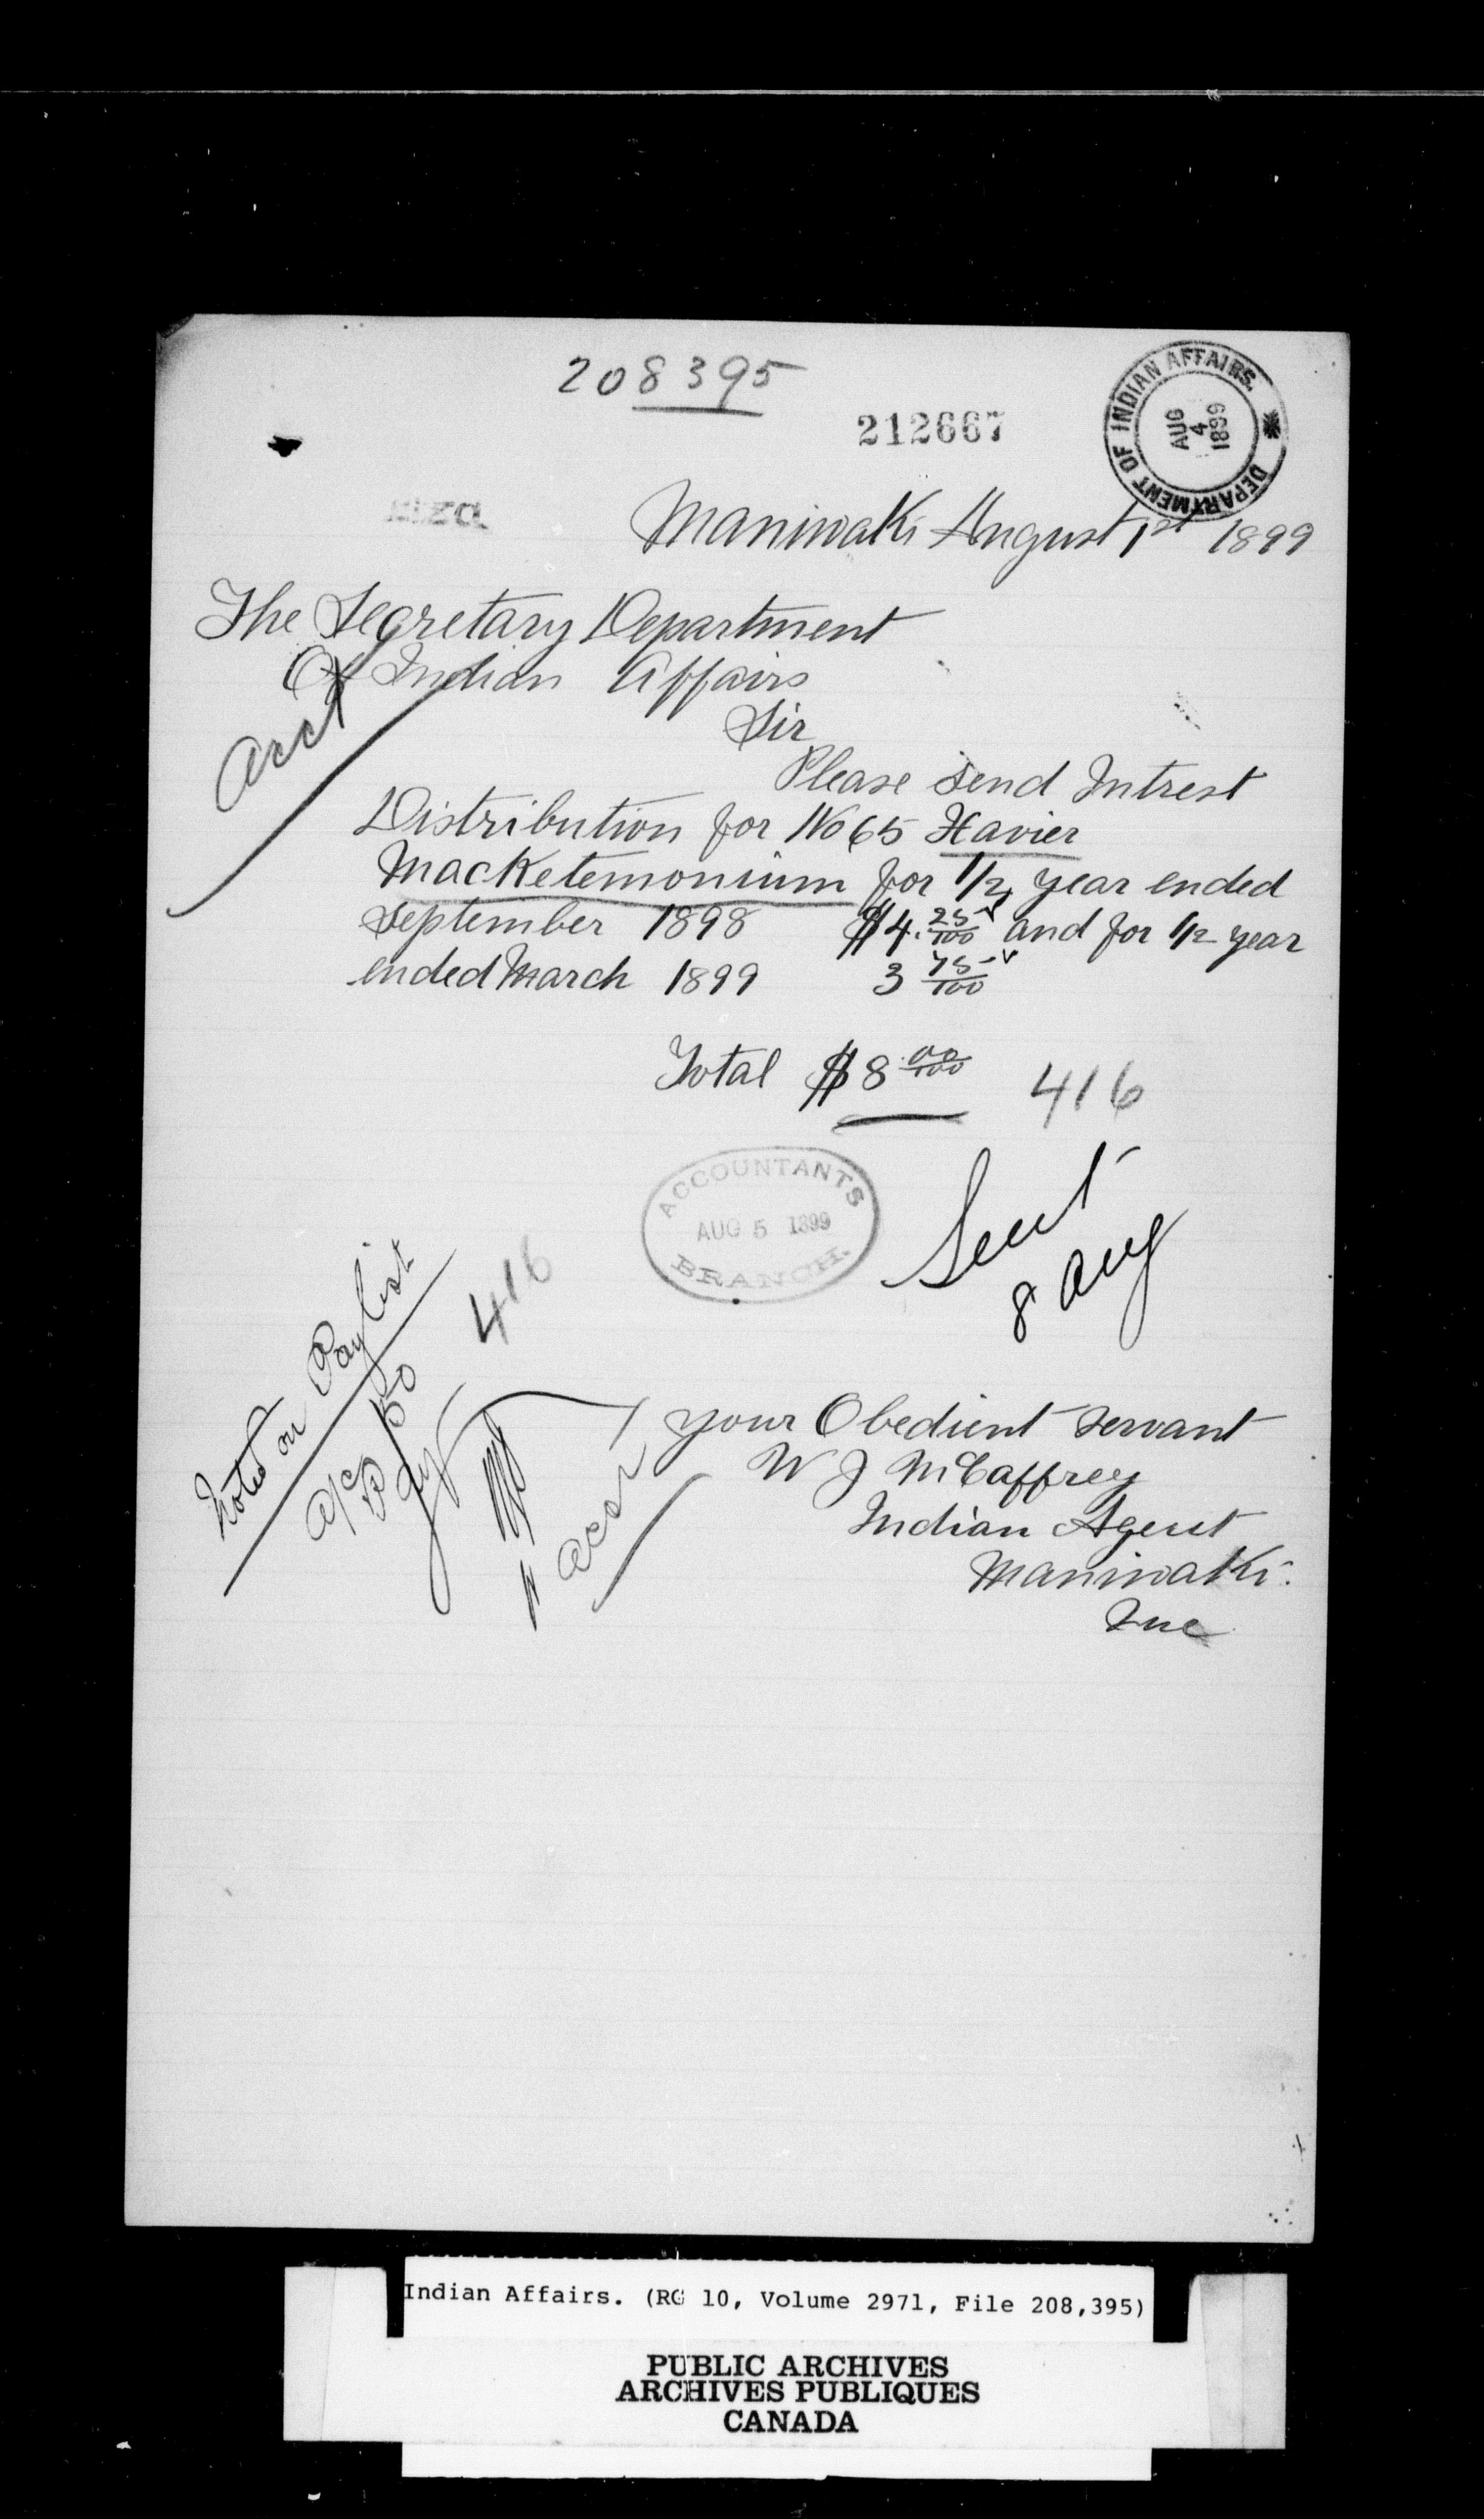 208395
212667
DEPARTMENT OF INDIAN AFFAIRS.
AUG
4
1899
Maniwaki August 1st 1899
The Segretary Department
Of Indian Affairs
Acct
Sir
Please send Intrest
Distribution for No 65 Xavier
Macketemonium for 1/2 year ended
September 1898 $4. 25/100 and for 1/2 year
ended March 1899 3 75/100
Total $8 00/100
416
ACCOUNTANTS
AUG 5 1899
BRANCH.
Sent
8 Aug
Noted on Paylist
416
your Obedient servant
W J McCaffrey
Indian Agent
Maniwaki.
Que
Indian Affairs. (RG 10, Volume 2971, File 208,395)
PUBLIC ARCHIVES
ARCHIVES PUBLIQUES
CANADA